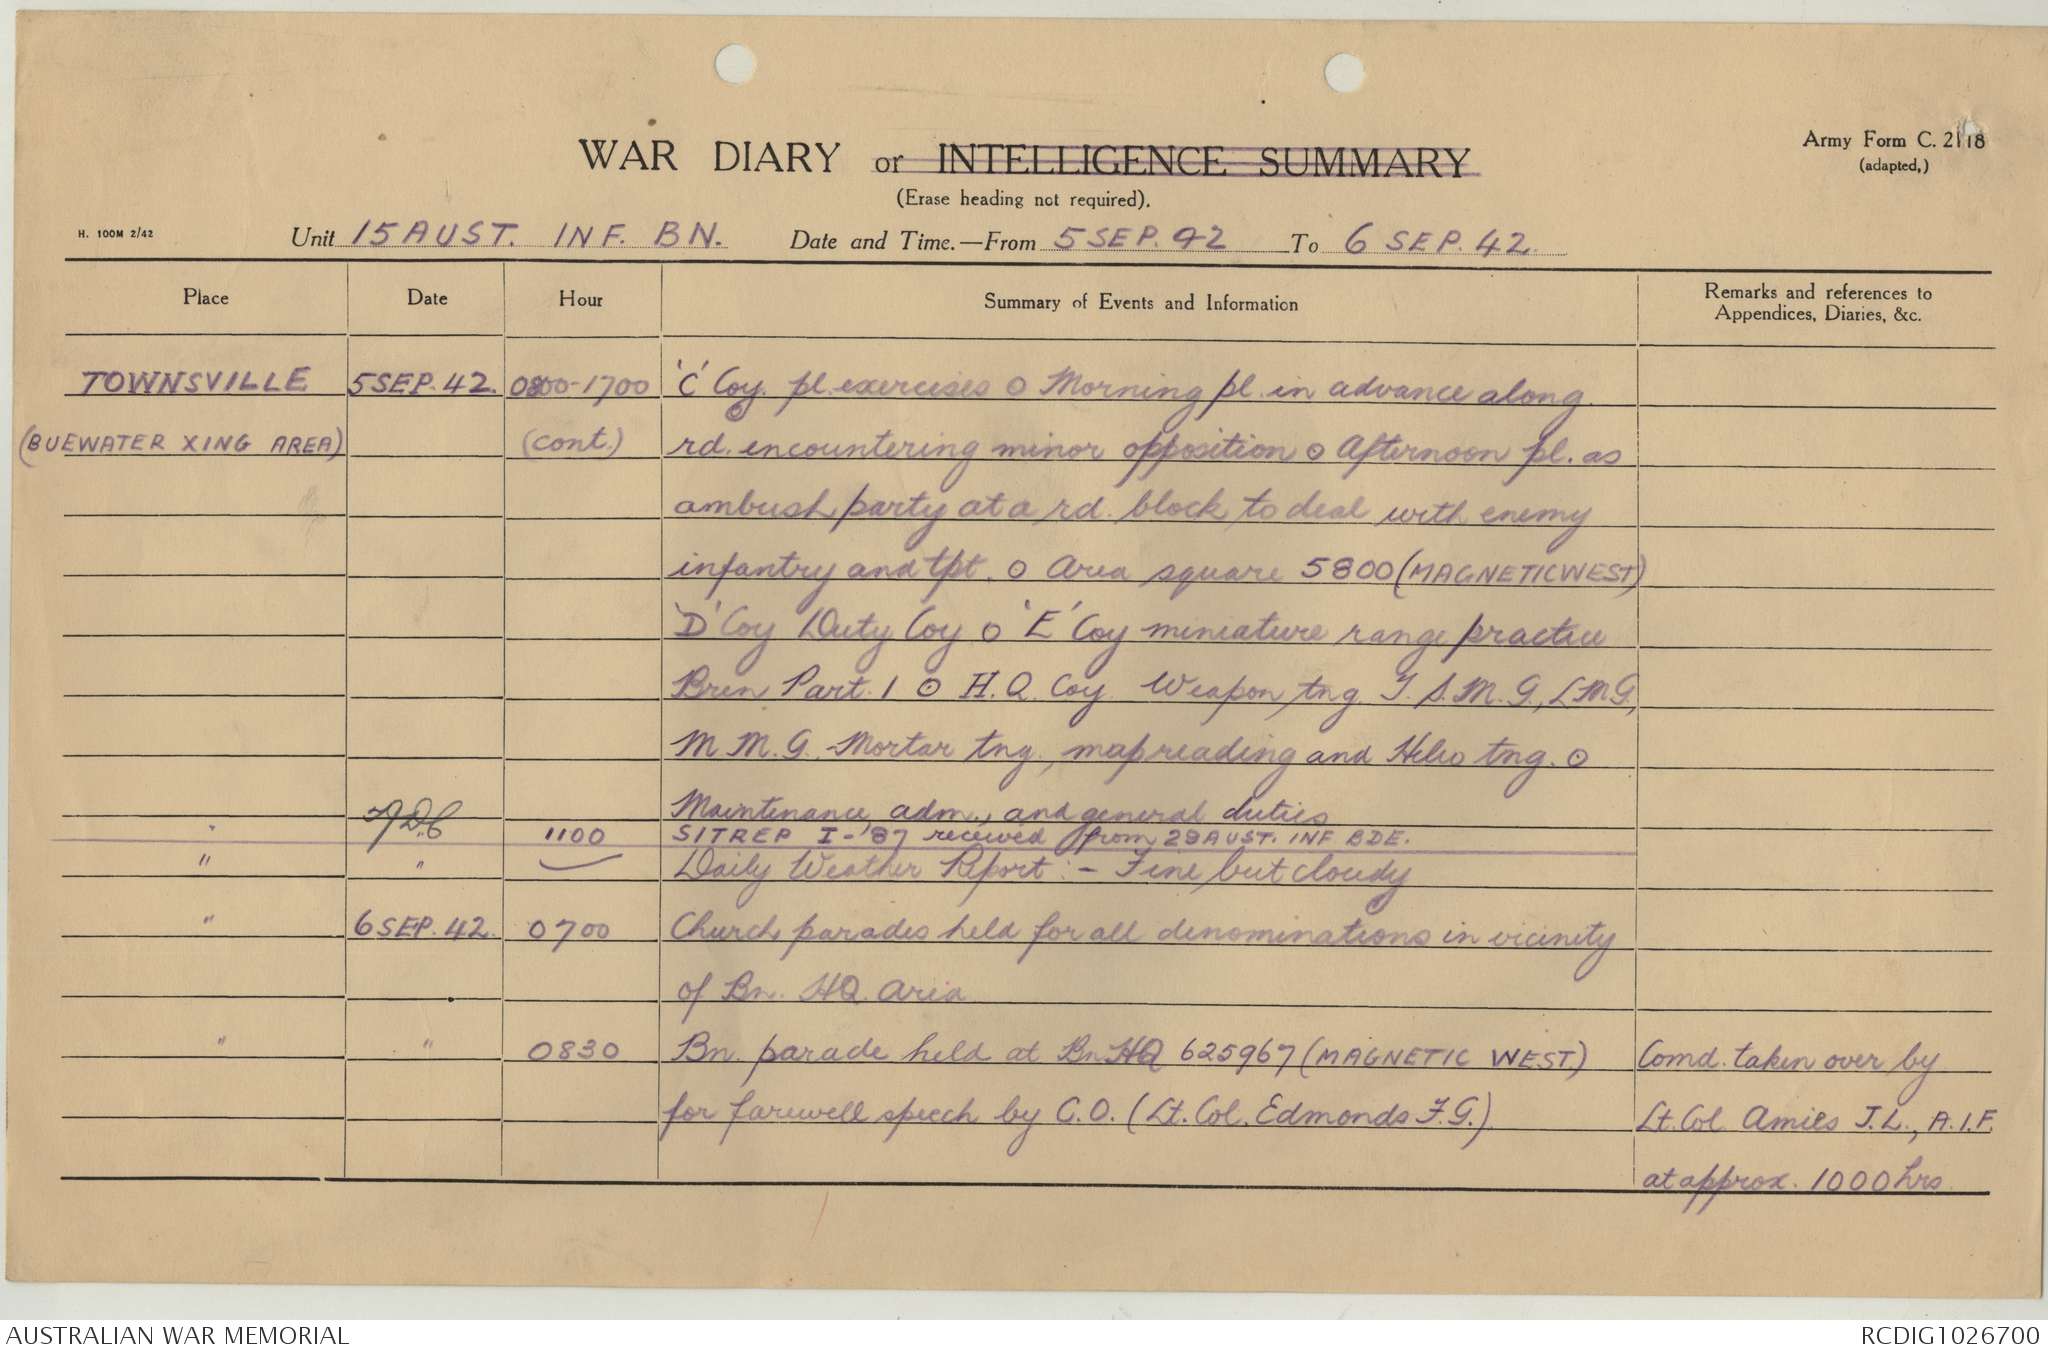 Army Form C. 2118
(adapted,)
WAR DIARY or INTELLIGENCE SUMMARY
(Erase heading not required).
H. 100M 2/42
Unit 15 AUST. INF. BN. Date and Time.—From 5 SEP. 42 To 6 SEP. 42.
Place Date Hour Summary of Events and Information Remarks and references to
Appendices, Diaries, &c.
TOWNSVILLE 5 SEP. 42. 0800-1700 'C' Coy. pl. exercises o Morning pl. in advance along
(BUEWATER XING AREA) (cont.) rd. encountering minor opposition o Afternoon pl. as
ambush party at a rd. block to deal with enemy
infantry and tpt. o Area square 5800 (MAGNETIC WEST)
'D' Coy Duty Coy o 'E' Coy miniature range practice
Bren Part. 1 o H.Q. Coy. Weapon tng. T.S.M.G., L.M.G.,
M.M.G. - Mortar tng., map reading and Helio tng. o
Maintenance, adm., and general duties
" 1100 SITREP I-'87 received from 29 AUST. INF BDE.
" " Daily Weather Report :- Fine but cloudy
" 6 SEP. 42. 0700 Church parades held for all denominations in vicinity
of Bn. HQ. area
" " 0830 Bn. parade held at Bn HQ 625967 (MAGNETIC WEST.) Comd. taken over by
for farewell speech by C.O. (Lt. Col. Edmonds F.G.) Lt. Col. Amies J.L., A.I.F.
at approx. 1000 hrs
AUSTRALIAN WAR MEMORIAL RCDIG1026700